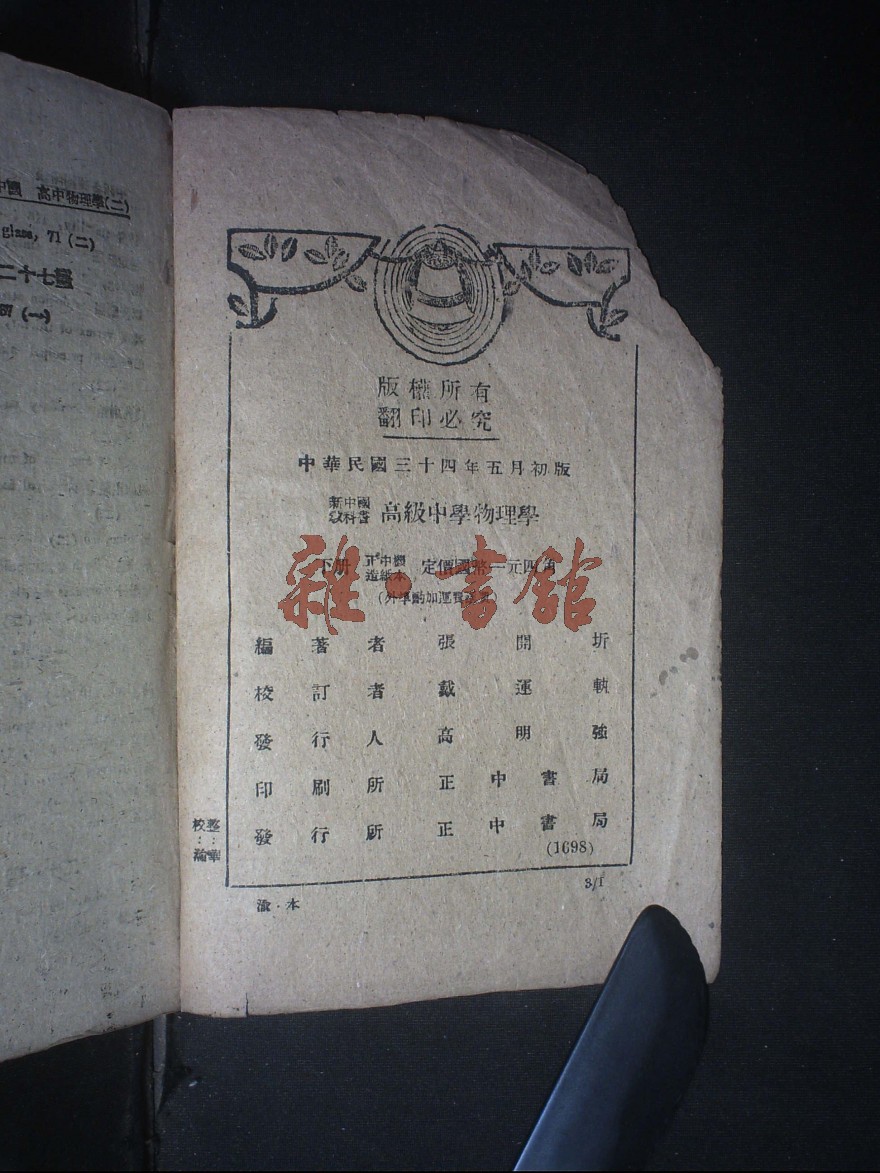 中國 高中物理學(二)
glass, 71 (二)
二十七畫
87 (一)
版權所有
翻印必究
中華民國三十四年五月初版
新中國
敎科書
高級中學物理學
下册 正中
造紙本 定價國幣一元四角
(外埠酌加運費
雜·書館
編著者 張開圻
校訂者 戴運軌
發行人 高明強
印刷所 正中書局
發行所 正中書局
(1698)
校整
：：
華
渝·本
3/1